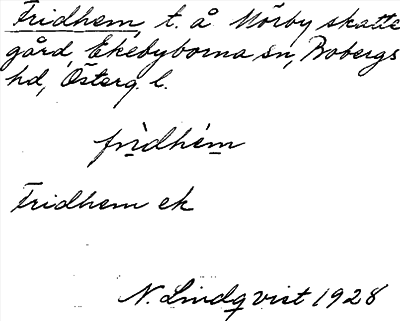 Fridhem, t. å Mörby skatte
gård, Ekebyborna sn, Bobergs
hd, Österg. l.
fri̱dhém̱
Fridhem ek
N. Lindqvist 1928